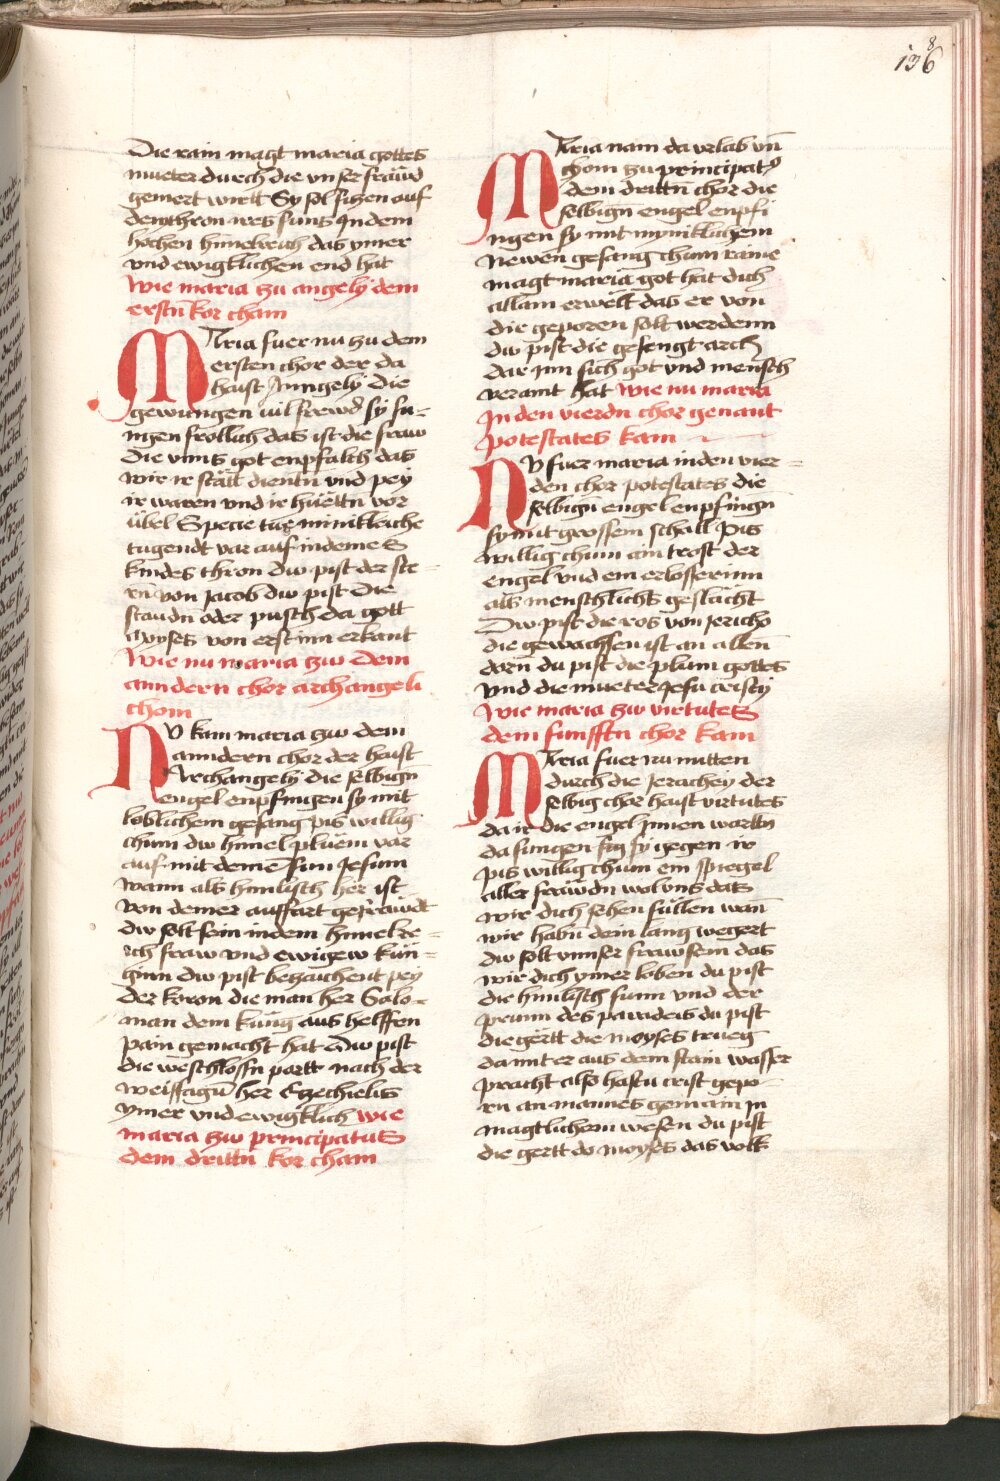 136
8
Die rain magt maria gottes
mueter durch die vnser frawd
gemert wirtt Sy sol sizen auf
dem thron ires suns In dem
hochen himelreich das ymer
vnd ewigklichen end hat
Wie maria zu angely dem
erstn kor cham
MAria fuer nu zu dem
ersten chor der da
haist Anngely die
gewungen uil frewd sy su=
ngen frollich das ist die fraw
Die vnns got enpfalch das
wir ir stätt dientn vnd pey
ir waren vnd ir hüettn vor
übel Specie tue minikleiche
tugendt var auf in deines
kindes thron Dw pist der ste=
rn von Jacob dw pist Die
staudn oder pusch da gott
Moyses von erst inn erkant
Wie nu maria zw dem
anndern chor archangeli
chom
NV kam maria zw dem
anndern chor der haist
Archangely die selbign
engel enpfingen sy mit
loblichem gesang pis willig
chum dw himel pluem var
auf mit deinē sun Jesum
wann als himlisch her ist
von deiner auffart gefrawdt
dw solt sein in dem himelre=
ich fraw vnd ewigew kün=
ginn dw pist bezaichent pey
der koron die man her Salo=
man dem künig aus helffen
pain gemacht hat Dw pist
die weschlossn portt nach der
weissagū her Ezechielis
ymer vnd ewigklich wie
maria zw principatus
dem drittn kor cham
MAria nam da vrlab vn̄
chom zu principat9
dem drittn chor die
selbign engel enpfi
ngen sy mit myniklichem
newen gesang chum raine
magt maria got hat dich
allain erwelt das er von
die geporen solt werdenn
dw pist die gesengt arch
dar inn sich got vnd mensch
veraint hat Wie nu maria
In den vierdn chor genant
potestates kam
NV fuer maria in den vier=
den chor potestates die
selbign engel enpfingn
sy mit grossem schall Pis
willig chum ain trost der
engel vnd ein erlosserinn
als menschlichs geslächt
Dw pist die ros von Jericho
die gewachsen ist an allen
dorn du pist die plum gottes
vnd die mueter Jesu cristy
Wie maria zw virtutes
dem funfftn chor kam
MAria fuer nu mitten
durch die Jerachey der
selbig chor haist virtutes
da ir die engel Innen warttn
da sungen sy gegen ir
pis willig chum ein spiegel
aller frawdn wol vns das
wir dich sehen süllen wan
wir habn dein lang wegert
dw solt vnnser fraw sein das
wir dich ymer loben du pist
die himlisch sunn vnd der
prunn des paradeis du pist
die gertt die moyses trueg
da mit er aus dem stain wasser
pracht also hastu crist gepo
rn an mannes gemain in
magtlichem wesen du pist
die gertt do moyses das volk